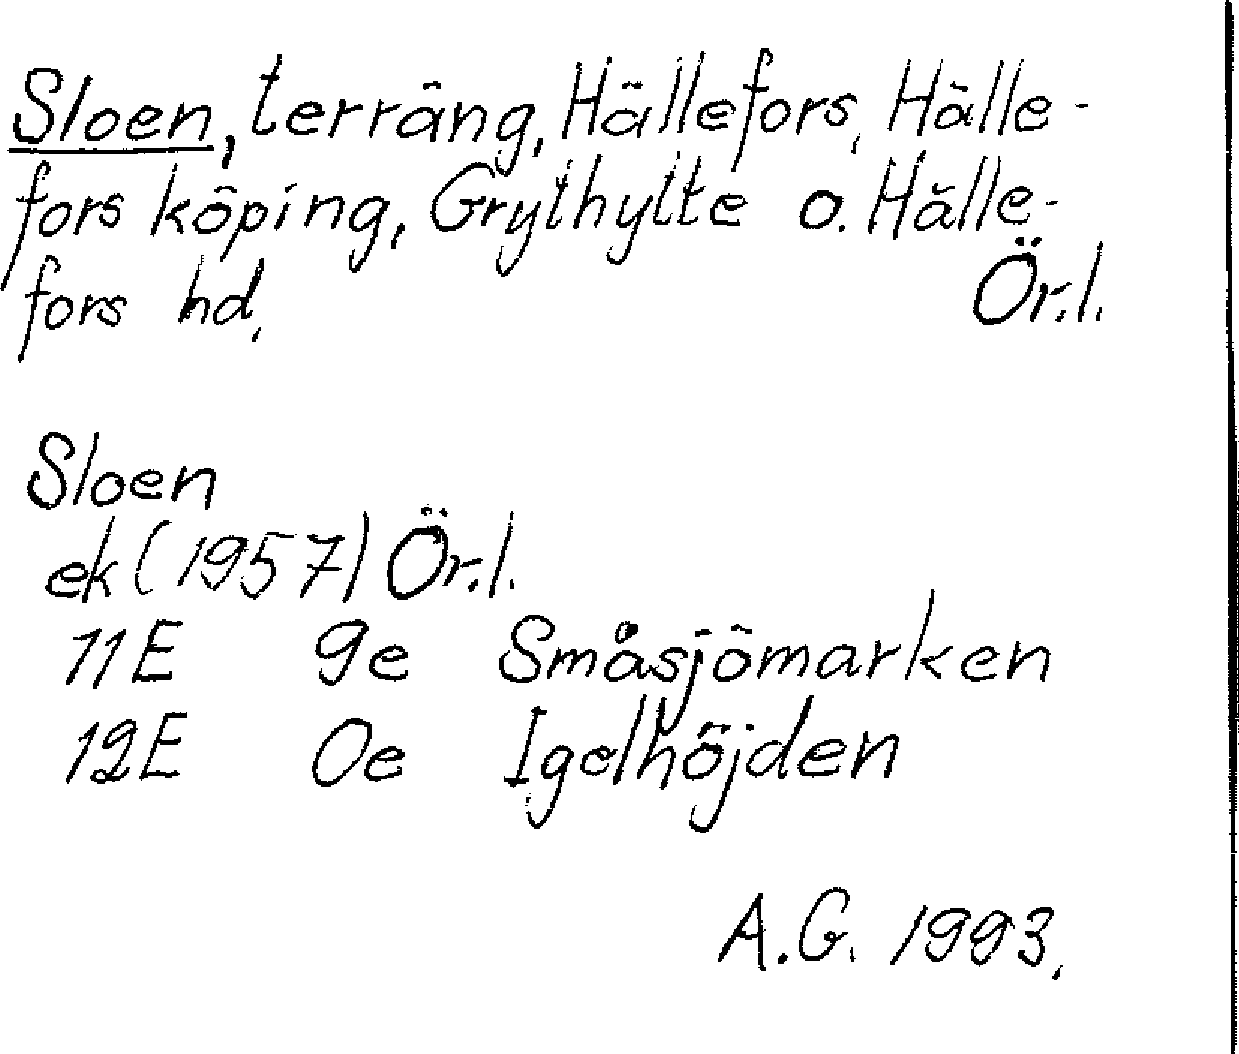 Sloen, terräng, Hällefors, Hälle-
fors köping, Grythytte o. Hälle-
fors hd. Ör.l.
Sloen
ek (1957) Ör.l.
11E 9e Småsjömarken
12E 0e Igelhöjden
A.G. 1993.